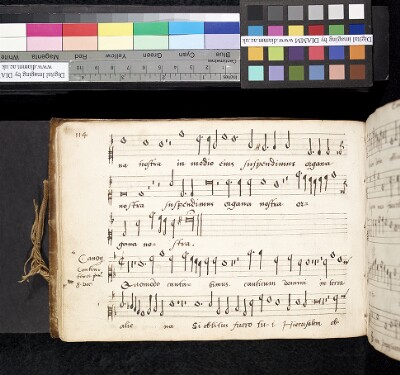 Digital Imaging by DIAMM
www.diamm.ac.uk
White Magenta Red Yellow Green Cyan Blue
Centimetres
Inches
Digital Imaging by DIAMM
www.diamm.ac.uk
114
na nostra in medio eius suspendimus organa
nostra suspendimus organa nostra or-
gana no- stra.
Canon
Quomodo canta- bimus canticum domini in terra
alie- na Si oblitus fuero tu- i Hierusalem ob